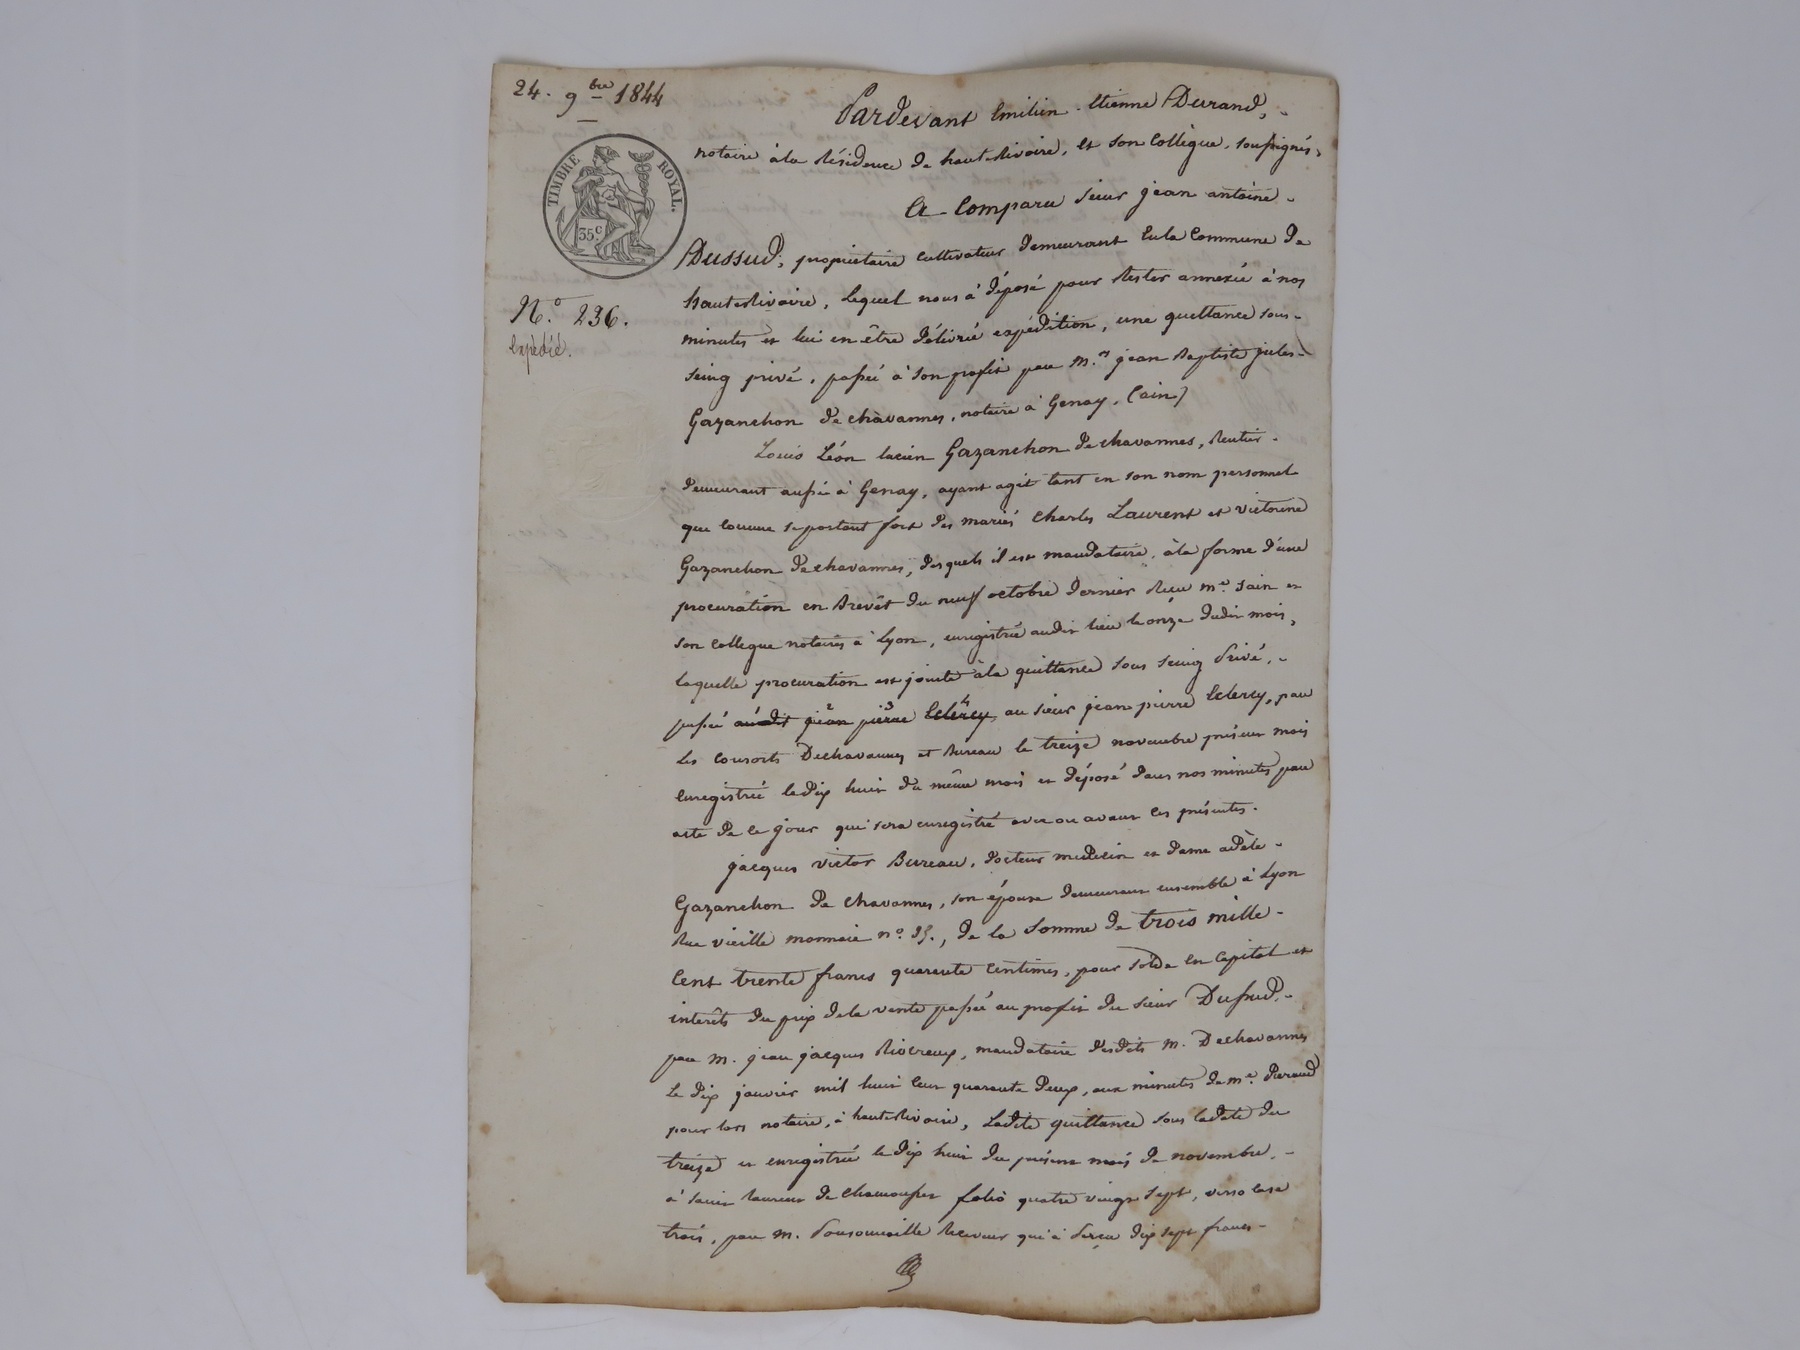 24. 9bre 1844
TIMBRE ROYAL.
35c
No. 236.
Expédié.
Pardevant Emilien Etienne Durand,
notaire à la Résidence de hauterivoire, et son Collègue, soussignés,
a Comparu sieur jean antoine
Dussud, propriétaire cultivateur demeurant en la Commune de
hauterivoire, lequel nous à déposé pour Rester annexée à nos
minutes et lui en être délivré expédition, une quittance sous-
seing privé, passée à son profit par M.rs jean Baptiste jules
Gazanchon de chàvannes, notaire à Genay, (ain)
Louis Léon lucien Gazanchon de chavannes, Rentier
demeurant aussi à Genay, ayant agit tant en son nom personnel
que comme se portant fort des mariés Charles Laurent et victorine
Gazanchon de chavannes, desquels il est mandataire, à la forme d'une
procuration en Brevêt du neuf octobre dernier Reçu me. Sain et
son collegue notaires à Lyon, enregistrée audit lieu le onze dudit mois,
laquelle procuration est jointe à la quittance sous seing Privé,
passée audit jean pierre Eclercy, au sieur jean pierre Eclercy, par
les consorts Dechavannes et Bureau le treize novembre présent mois
enregistrée le dix huit du même mois et déposé dans nos minutes par
acte de ce jour qui sera enregistré avec ou avant ces présentes.
jacques victor Bureau, docteur medecin et dame adèle
Gazanchon de chavannes, son épouse demeurant ensemble à Lyon
Rue vieille monnaie no. , de la somme de trois mille
Cent trente francs quarante centimes, pour solde en Capital et
interêts du prix de la vente passée au profit du sieur Dussud,
par m. jean jacques Rivereux, mandataire desdits M. Dechavannes
Le dix janvier mil huit cent quarante deux, aux minutes de me.
pour lors notaire, à hauterivoire, Ladite quittance sous la date du
treize et enregistrée le dix huit du présent mois de novembre,
à saint Laurent de chamousset folio quatre vingt sept, verso case
trois, par m. Receveur qui à Perçu dix sept francs